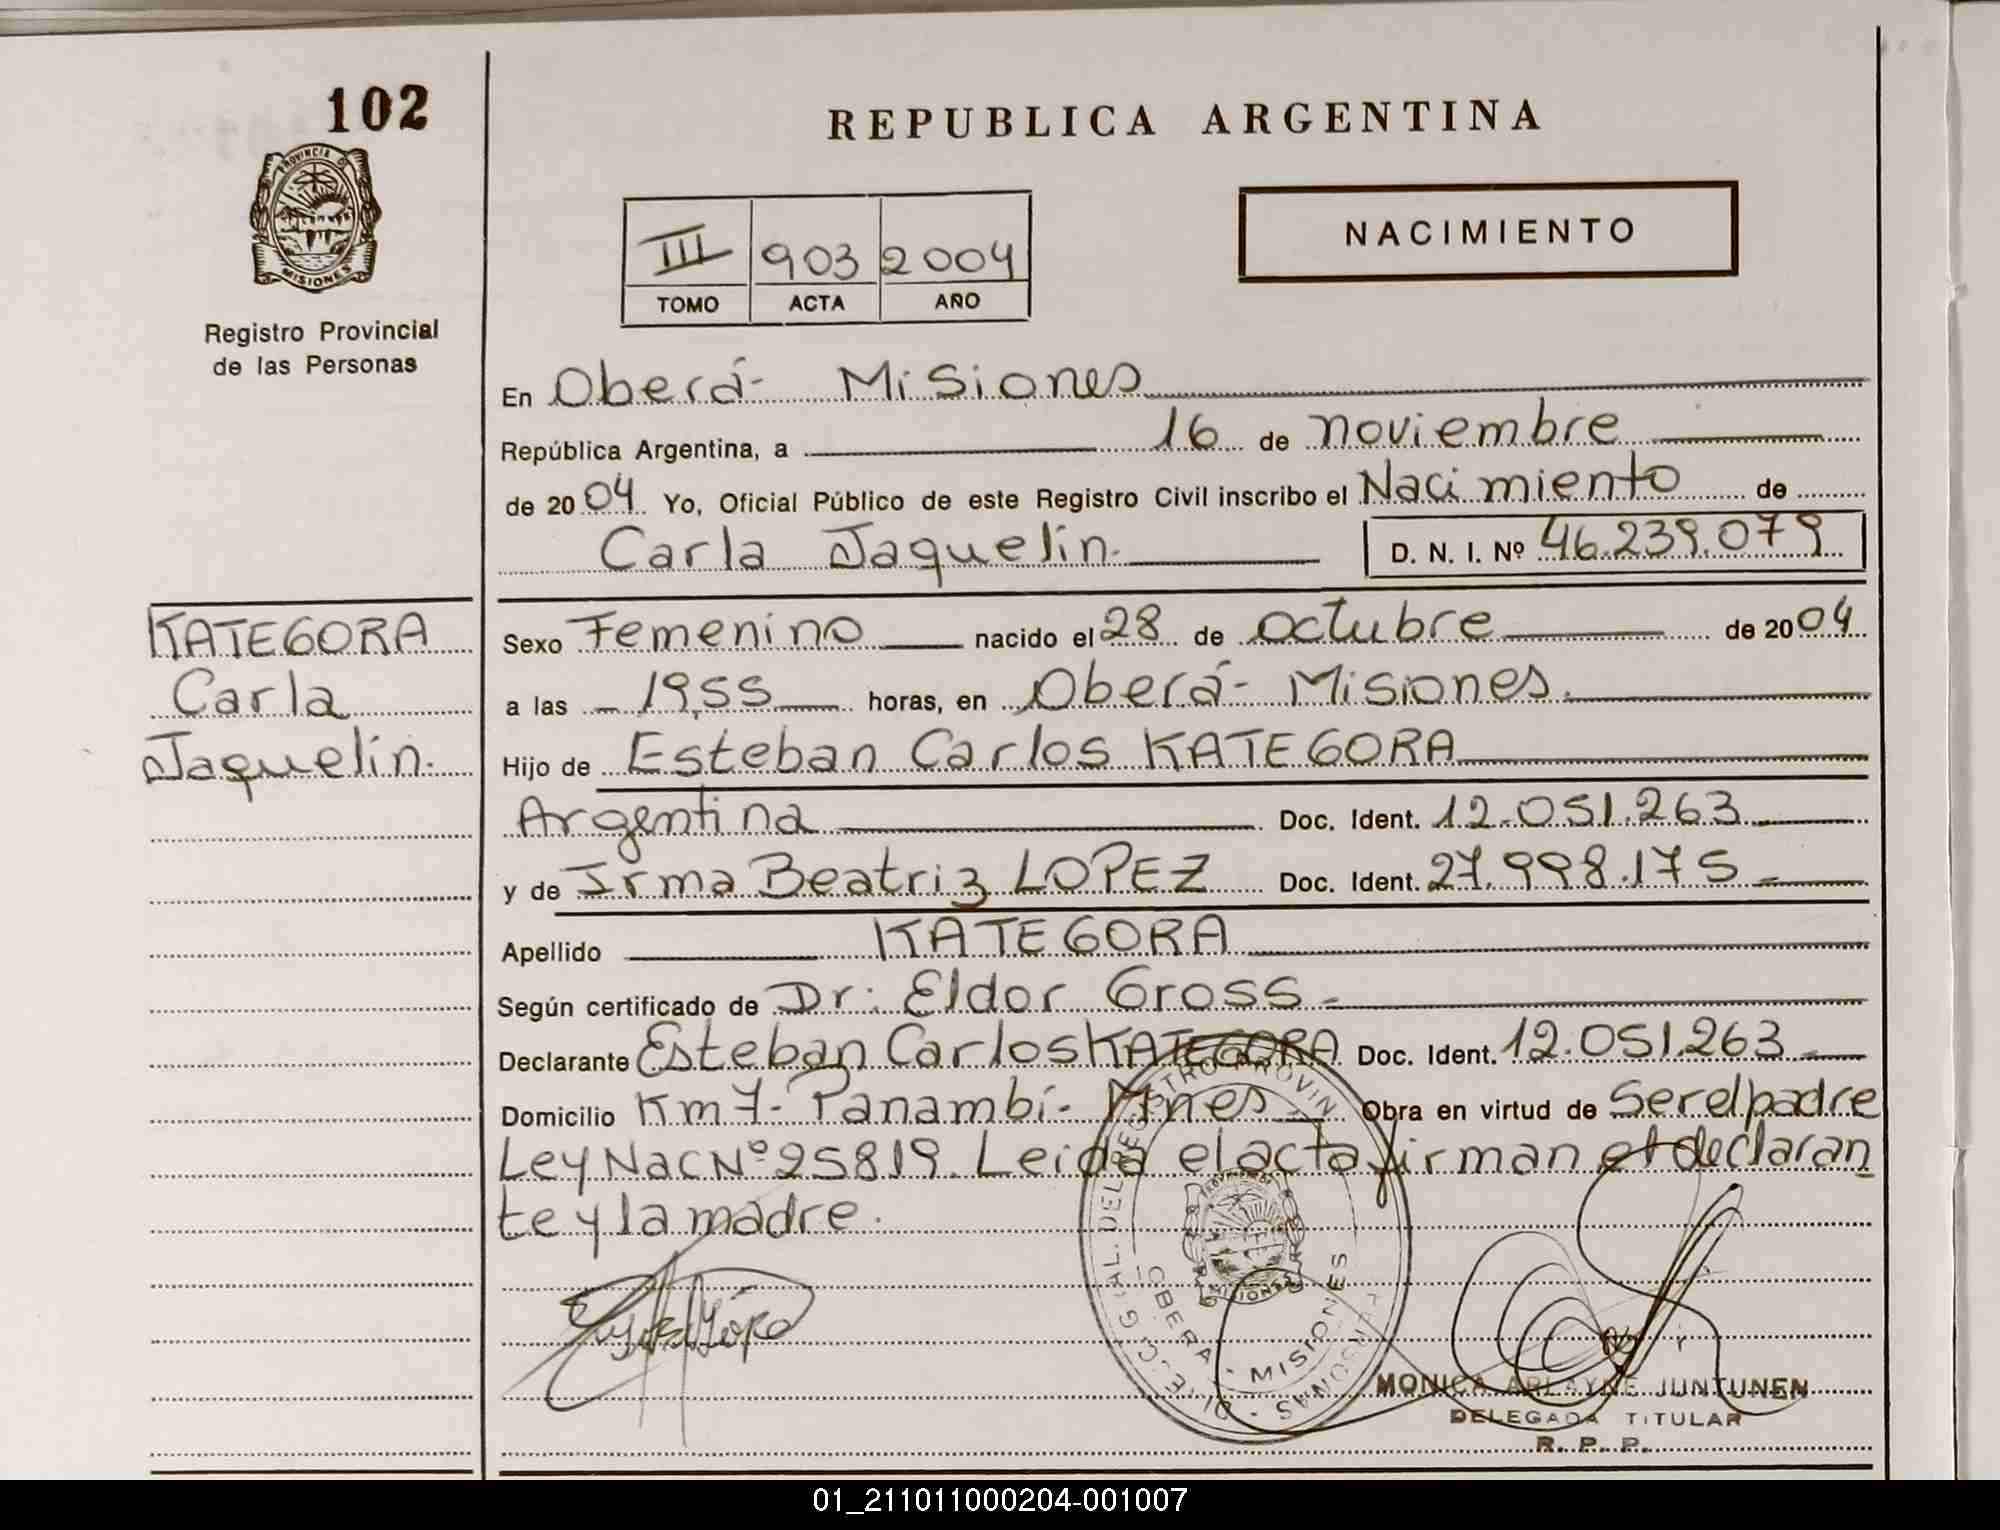 102
PROVINCIA DE
MISIONES
Registro Provincial
de las Personas
REPUBLICA ARGENTINA
III 903 2004
TOMO ACTA AÑO
NACIMIENTO
En Oberá- Misiones
República Argentina, a 16 de noviembre
de 2004 Yo, Oficial Público de este Registro Civil inscribo el Nacimiento de
Carla Jaquelin. D. N. I. Nº 46.239.079
KATEGORA
Carla
Jaquelin.
Sexo Femenino nacido el 28 de octubre de 2004
a las 19,55 horas, en Oberá- Misiones.
Hijo de Esteban Carlos KATEGORA
Argentina Doc. Ident. 12.051.263
y de Irma Beatriz LOPEZ Doc. Ident. 27.998.175
Apellido KATEGORA
Según certificado de Dr: Eldor Gross
Declarante Esteban Carlos KATEGORA Doc. Ident. 12.051.263
Domicilio Km 7- Panambí- Mnes Obra en virtud de Ser el padre
Ley Nac Nº 25819. Leida el acta firman el declaran
te y la madre.
MISIONES
OBERA - MISIONES
MONICA ARLAYNE JUNTUNEN
DELEGADA TITULAR
R. P. P.
01_211011000204-001007